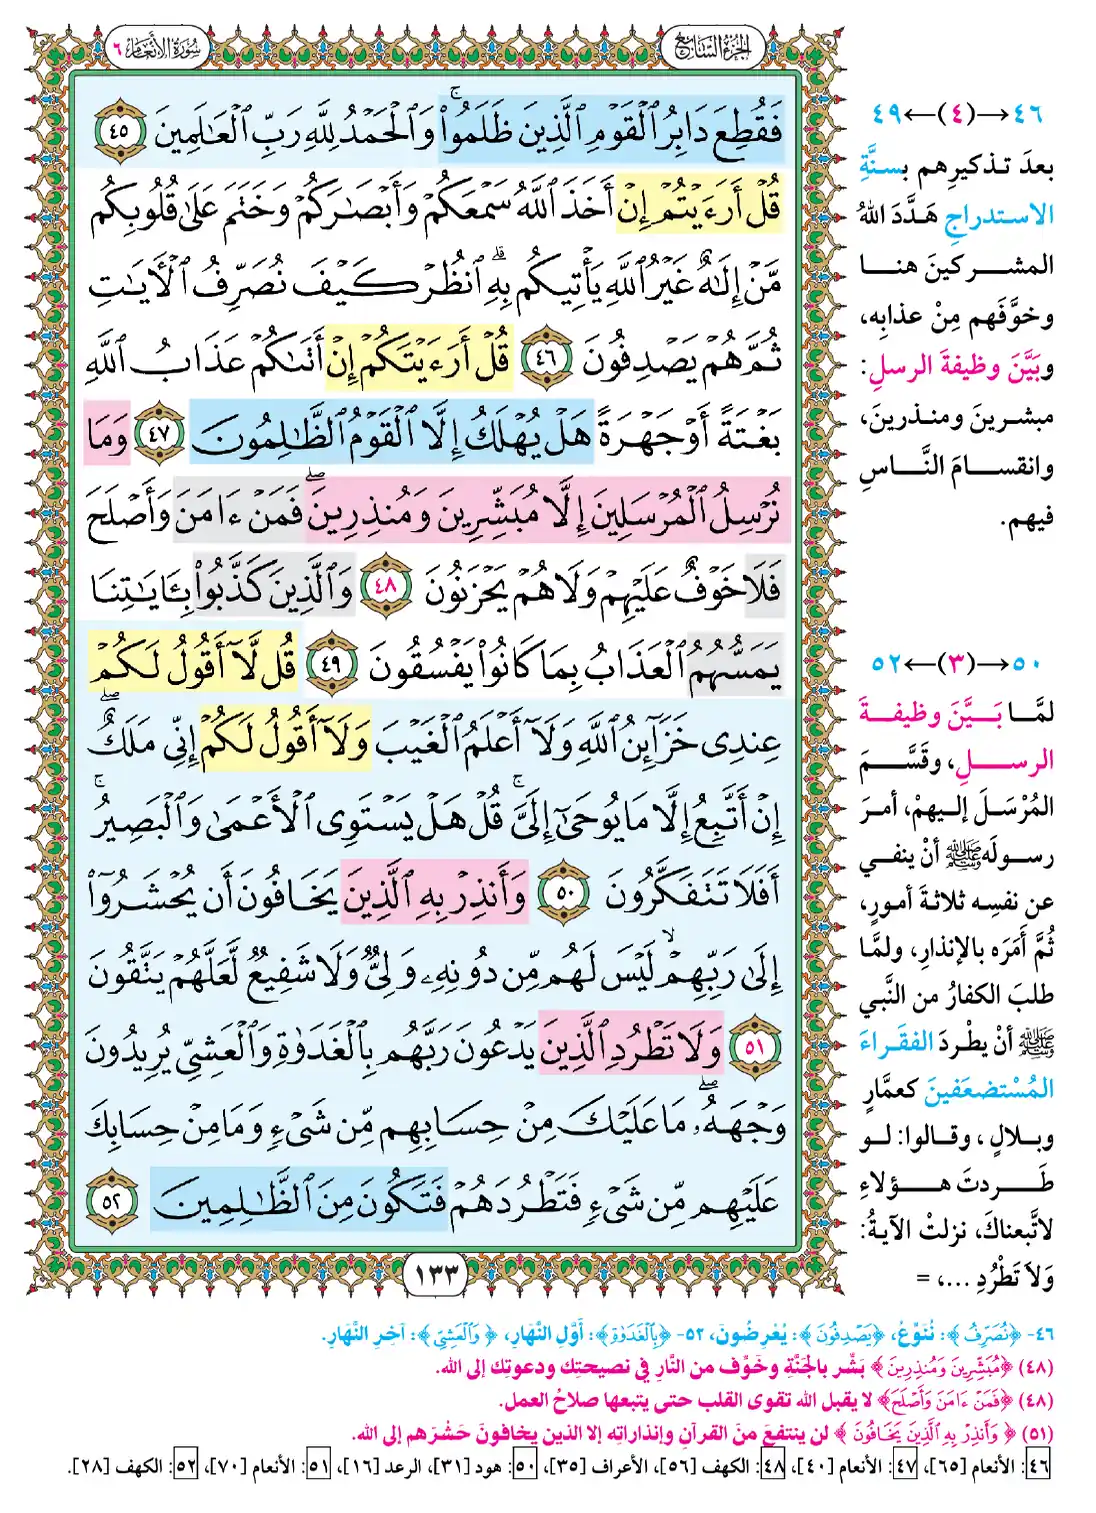 الجزء السابع
سورة الأنعام ٦
فَقُطِعَ دَابِرُ ٱلْقَوْمِ ٱلَّذِينَ ظَلَمُوا۟ ۚ وَٱلْحَمْدُ لِلَّهِ رَبِّ ٱلْعَٰلَمِينَ ٤٥
قُلْ أَرَءَيْتُمْ إِنْ أَخَذَ ٱللَّهُ سَمْعَكُمْ وَأَبْصَٰرَكُمْ وَخَتَمَ عَلَىٰ قُلُوبِكُم
مَّنْ إِلَٰهٌ غَيْرُ ٱللَّهِ يَأْتِيكُم بِهِ ۗ ٱنظُرْ كَيْفَ نُصَرِّفُ ٱلْءَايَٰتِ
ثُمَّ هُمْ يَصْدِفُونَ ٤٦ قُلْ أَرَءَيْتَكُمْ إِنْ أَتَىٰكُمْ عَذَابُ ٱللَّهِ
بَغْتَةً أَوْ جَهْرَةً هَلْ يُهْلَكُ إِلَّا ٱلْقَوْمُ ٱلظَّٰلِمُونَ ٤٧ وَمَا
نُرْسِلُ ٱلْمُرْسَلِينَ إِلَّا مُبَشِّرِينَ وَمُنذِرِينَ ۖ فَمَنْ ءَامَنَ وَأَصْلَحَ
فَلَا خَوْفٌ عَلَيْهِمْ وَلَا هُمْ يَحْزَنُونَ ٤٨ وَٱلَّذِينَ كَذَّبُوا۟ بِـَٔايَٰتِنَا
يَمَسُّهُمُ ٱلْعَذَابُ بِمَا كَانُوا۟ يَفْسُقُونَ ٤٩ قُل لَّآ أَقُولُ لَكُمْ
عِندِى خَزَآئِنُ ٱللَّهِ وَلَآ أَعْلَمُ ٱلْغَيْبَ وَلَآ أَقُولُ لَكُمْ إِنِّى مَلَكٌ ۖ
إِنْ أَتَّبِعُ إِلَّا مَا يُوحَىٰٓ إِلَىَّ ۚ قُلْ هَلْ يَسْتَوِى ٱلْأَعْمَىٰ وَٱلْبَصِيرُ ۚ
أَفَلَا تَتَفَكَّرُونَ ٥٠ وَأَنذِرْ بِهِ ٱلَّذِينَ يَخَافُونَ أَن يُحْشَرُوٓا۟
إِلَىٰ رَبِّهِمْ ۙ لَيْسَ لَهُم مِّن دُونِهِۦ وَلِىٌّ وَلَا شَفِيعٌ لَّعَلَّهُمْ يَتَّقُونَ
٥١ وَلَا تَطْرُدِ ٱلَّذِينَ يَدْعُونَ رَبَّهُم بِٱلْغَدَوٰةِ وَٱلْعَشِىِّ يُرِيدُونَ
وَجْهَهُۥ ۖ مَا عَلَيْكَ مِنْ حِسَابِهِم مِّن شَىْءٍ وَمَا مِنْ حِسَابِكَ
عَلَيْهِم مِّن شَىْءٍ فَتَطْرُدَهُمْ فَتَكُونَ مِنَ ٱلظَّٰلِمِينَ ٥٢
١٣٣
٤٦→(٤)←٤٩
بعدَ تذكيرِهم بسنَّةِ
الاستدراجِ هَدَّدَ اللهُ
المشركينَ هنا
وخوَّفَهم مِنْ عذابِه،
وبَيَّنَ وظيفةَ الرسلِ:
مبشرينَ ومنذرينَ،
وانقسامَ النَّاسِ
فيهم.
٥٠→(٣)←٥٢
لمَّا بَيَّنَ وظيفةَ
الرسلِ، وقَسَّمَ
المُرْسَلَ إليهمْ، أمرَ
رسولَه ﷺ أنْ ينفي
عن نفسِه ثلاثةَ أمورٍ،
ثُمَّ أَمَرَه بالإنذارِ، ولمَّا
طلبَ الكفارُ من النَّبي
ﷺ أنْ يطْردَ الفقَراءَ
المُسْتضعَفينَ كعمَّارٍ
وبلالٍ، وقالوا: لو
طَردتَ هؤلاءِ
لاتَّبعناكَ، نزلتْ الآيةُ:
وَلاَ تَطْرُدِ ...، =
٤٦- ﴿نُصَرِّفُ﴾: نُنَوِّعُ، ﴿يَصْدِفُونَ﴾: يُعْرِضُونَ، ٥٢- ﴿بِٱلْغَدَوٰةِ﴾: أَوَّلِ النَّهَارِ، ﴿وَٱلْعَشِىِّ﴾: آخِرِ النَّهَارِ.
(٤٨) ﴿مُبَشِّرِينَ وَمُنذِرِينَ﴾ بَشِّر بالجَنَّةِ وخَوِّف من النَّارِ في نصيحتِك ودعوتِك إلى الله.
(٤٨) ﴿فَمَنْ ءَامَنَ وَأَصْلَحَ﴾ لا يقبل الله تقوى القلب حتى يتبعها صلاحُ العمل.
(٥١) ﴿وَأَنذِرْ بِهِ ٱلَّذِينَ يَخَافُونَ﴾ لن ينتفعَ منَ القرآنِ وإنذاراتِه إلا الذين يخافونَ حَشْرَهم إلى الله.
٤٦: الأنعام [٦٥]، ٤٧: الأنعام [٤٠]، ٤٨: الكهف [٥٦]، الأعراف [٣٥]، ٥٠: هود [٣١]، الرعد [١٦]، ٥١: الأنعام [٧٠]، ٥٢: الكهف [٢٨].